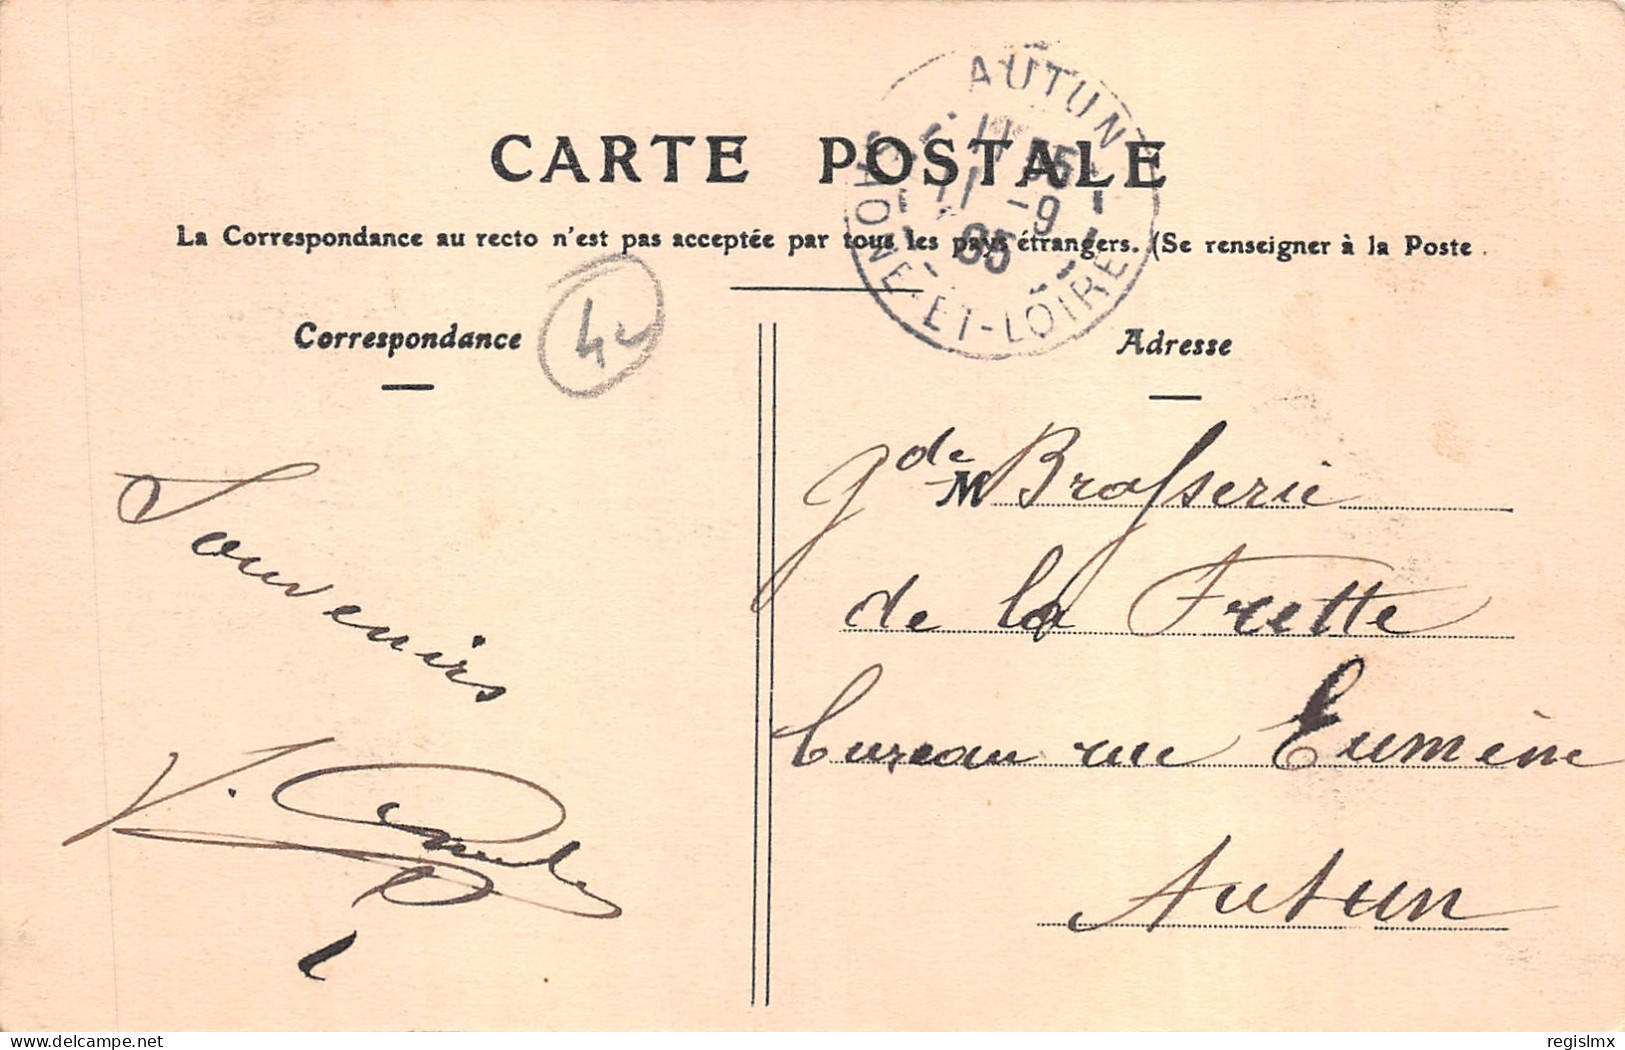 CARTE POSTALE
La Correspondance au recto n'est pas acceptée par tous les pays étrangers. (Se renseigner à la Poste
AUTUN
11 -9
05
SAONE-ET-LOIRE
Correspondance
Adresse
Souvenirs
V.
Gde M Brasserie
de la Frette
bureau rue Eumène
Autun
delcampe.net
regislmx